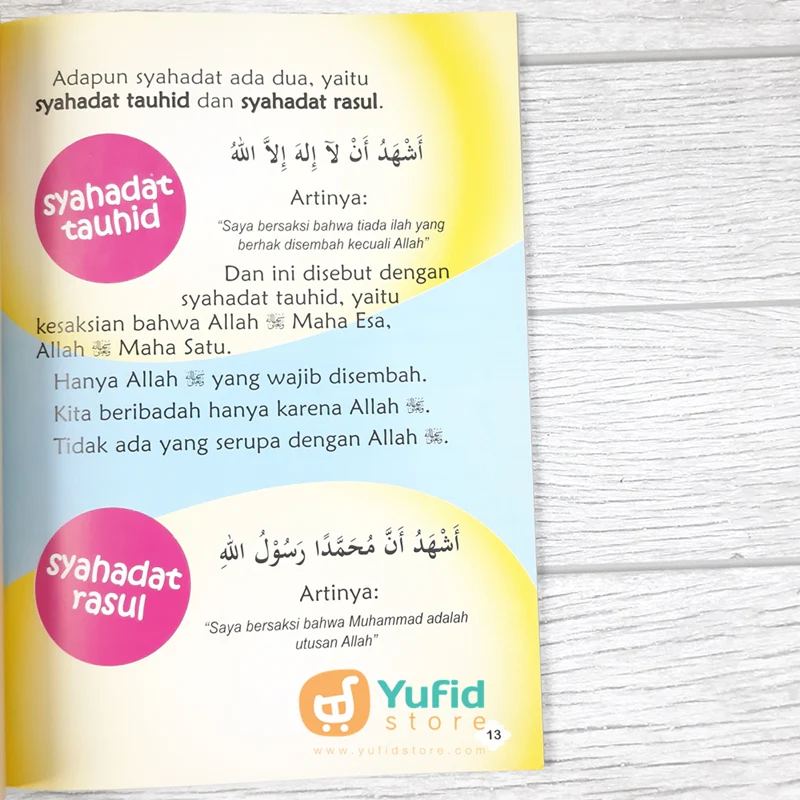 Adapun syahadat ada dua, yaitu
syahadat tauhid dan syahadat rasul.
syahadat
tauhid
أَشْهَدُ أَنْ لَآ إِلهَ إِلاَّ اللهُ
Artinya:
“Saya bersaksi bahwa tiada ilah yang
berhak disembah kecuali Allah”
Dan ini disebut dengan
syahadat tauhid, yaitu
kesaksian bahwa Allah ﷻ Maha Esa,
Allah ﷻ Maha Satu.
Hanya Allah ﷻ yang wajib disembah.
Kita beribadah hanya karena Allah ﷻ.
Tidak ada yang serupa dengan Allah ﷻ.
syahadat
rasul
أَشْهَدُ أَنَّ مُحَمَّدًا رَسُوْلُ اللهِ
Artinya:
“Saya bersaksi bahwa Muhammad adalah
utusan Allah”
Yufid
store
13
www.yufidstore.com